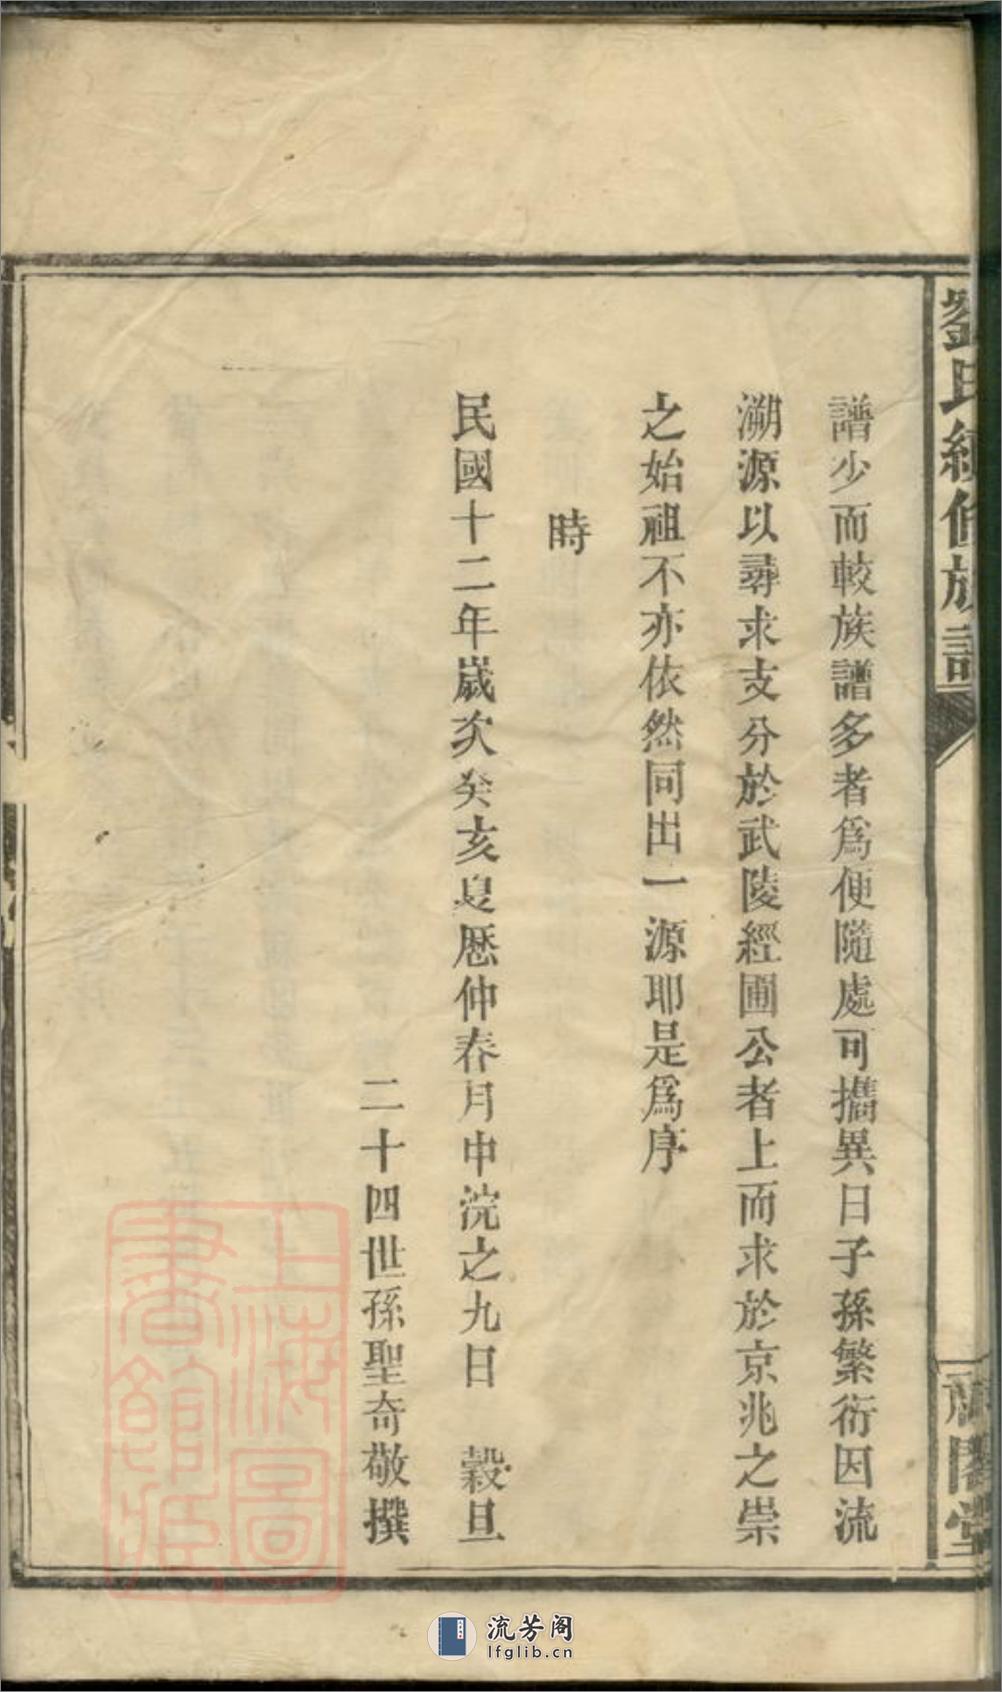 劉氏續修族譜
譜少而較族譜多者為便隨處可攜異日子孫繁衍因流
溯源以尋求支分於武陵經圃公者上而求於京兆之崇
之始祖不亦依然同出一源耶是為序
時
民國十二年歲次癸亥夏曆仲春月中浣之九日 穀旦
二十四世孫聖奇敬撰
上海圖書館藏
流芳阁
lfglib.cn